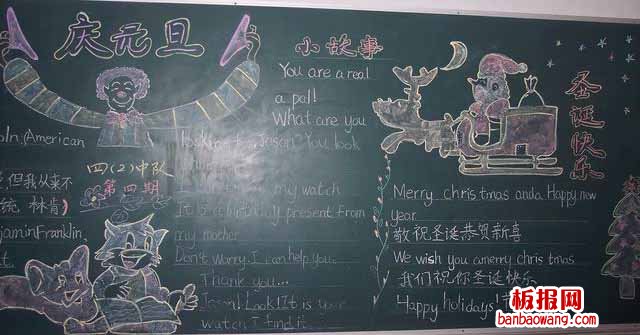 庆元旦
oln.(American
,但我从来不
林肯)
njaminFranklin.
四(2)中队
第四期
小故事
You are a real
a pal!
What are you
looking for, Jason? You look
my watch
It is a birthday present from
my mother
Don't worry. I can help you.
Thank you...
Jason! Look! It is your
watch I find it
圣诞快乐
Merry christmas anda Happy new
year
敬祝圣诞恭贺新喜
We wish you amerry christmas
我们祝你圣诞快乐
Happy holidays!
板报网
banbaowang.com